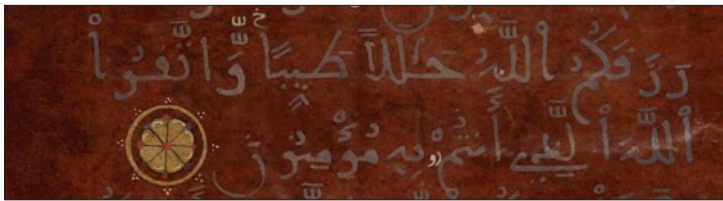 رَزَقَكُمُ اللَّهُ حَلَلاً طَيِّبًا وَّاتَّقُواْ
اللَّهَ اَ۬لَّذِي أَنتُم بِهِ مُؤْمِنُونَ